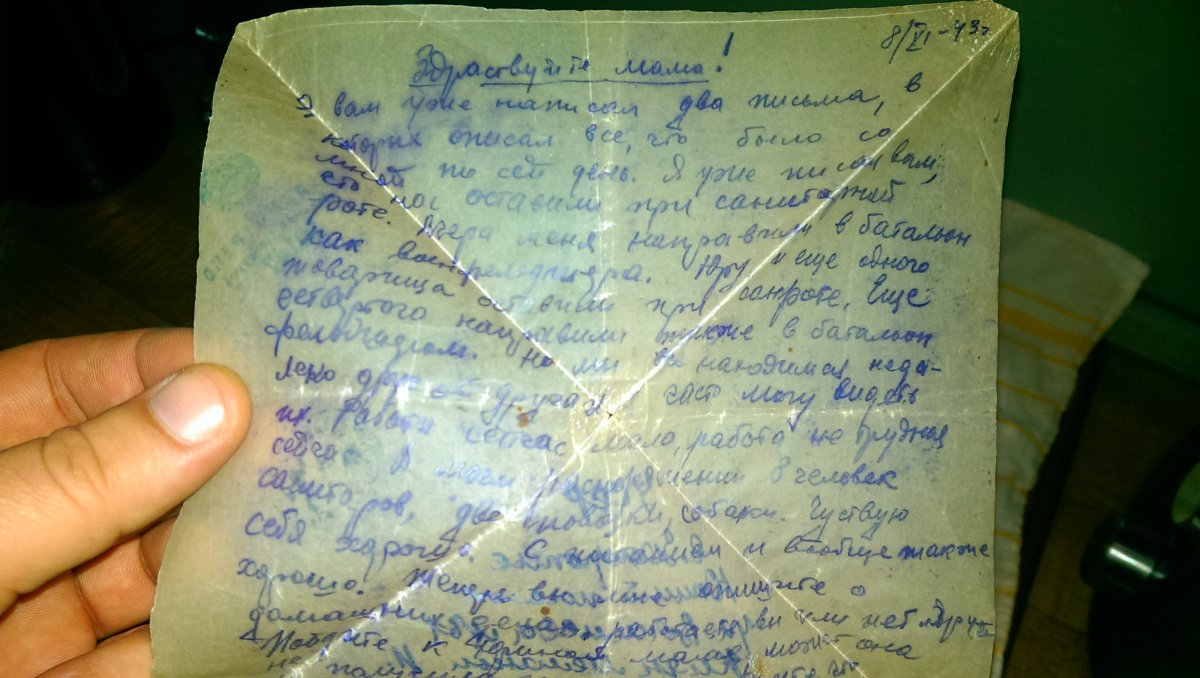 8/VI-43г
Здраствуйте мама!
Я вам уже написал два письма, в
которых описал все, что было со
мной по сей день. Я уже писал вам,
что нас оставили при санитарной
роте. Вчера меня направили в батальон
как военфельдшера. и еще одного
товарища оставили при санроте. Еще
направили также в батальон
фельдшером. Но мы все находимся неда-
леко друг от друга и часто могу видеть
их. Работы сейчас мало, работа не трудная
сейчас. В моем распоряжении 8 человек
санитаров, две собаки. Чуствую
себя хорошо. С питанием и вообще также
хорошо. опишите о
домашних делах, работаете вы или нет
Пойдите к маме может она
не получила что